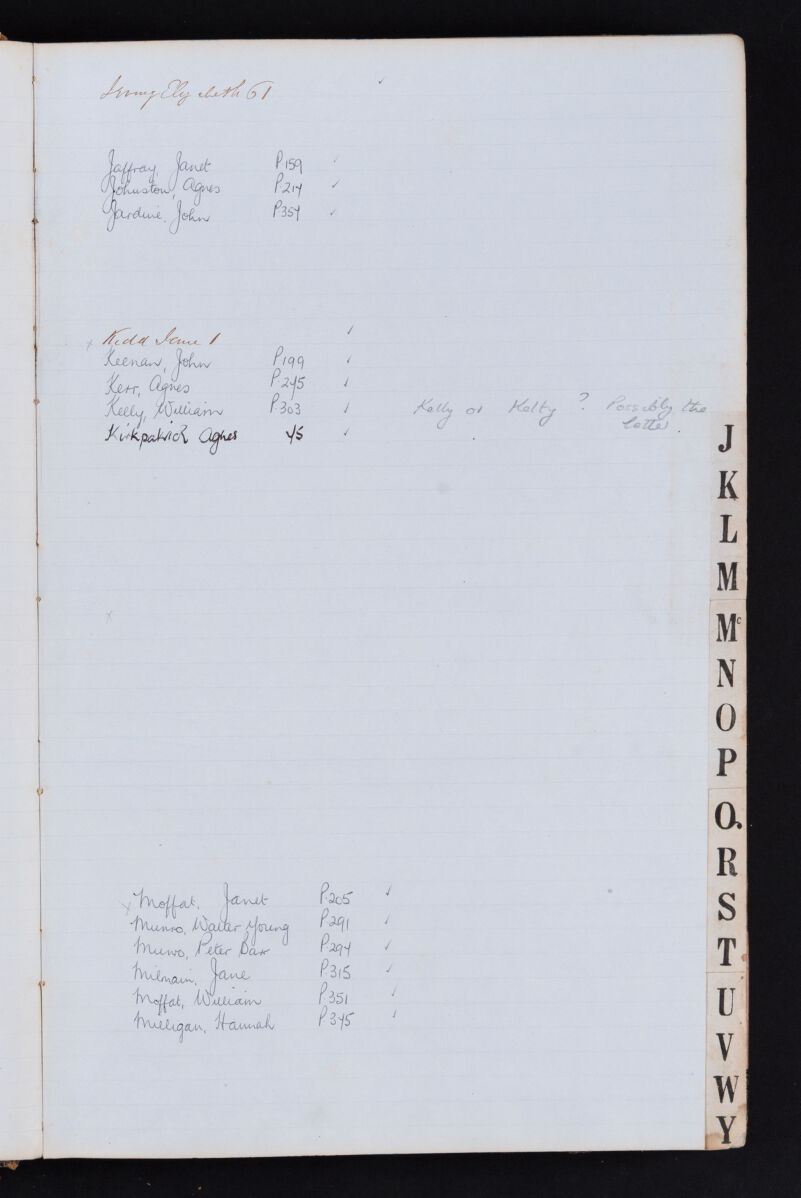 Irving Elizabeth 61 ✓
Jaffray, Janet P159 ✓
Johnston, Agnes P214 ✓
Jardine, John P354 ✓
x Kidd Jane 1 ✓
Keenan, John P199 ✓
Kerr, Agnes P245 ✓
Kelly, William P303 ✓ Kelly or Kelty ? Possibly the
latter.
Kirkpatrick Agnes 45 ✓
J
K
L
M
x
Mc
N
O
P
Q
R
x Moffat, Janet P205 ✓
Munro, Walter Young P291 ✓
S
Munro, Peter Barr P294 ✓
T
Milnain, Jane P315 ✓
Moffat, William P351 ✓
U
Milligan, Hannah P345 ✓
V
W
Y